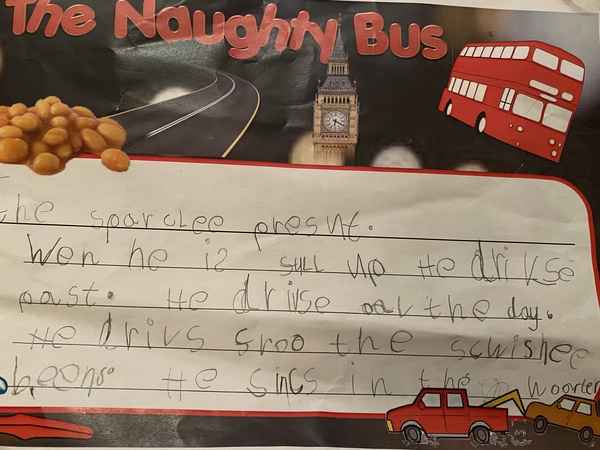 The Naughty Bus
the sparclee presnt.
Wen he is up He drivse
past. He drivse the day.
He drivs froo the scwishee
beens. He sincs in the woorter